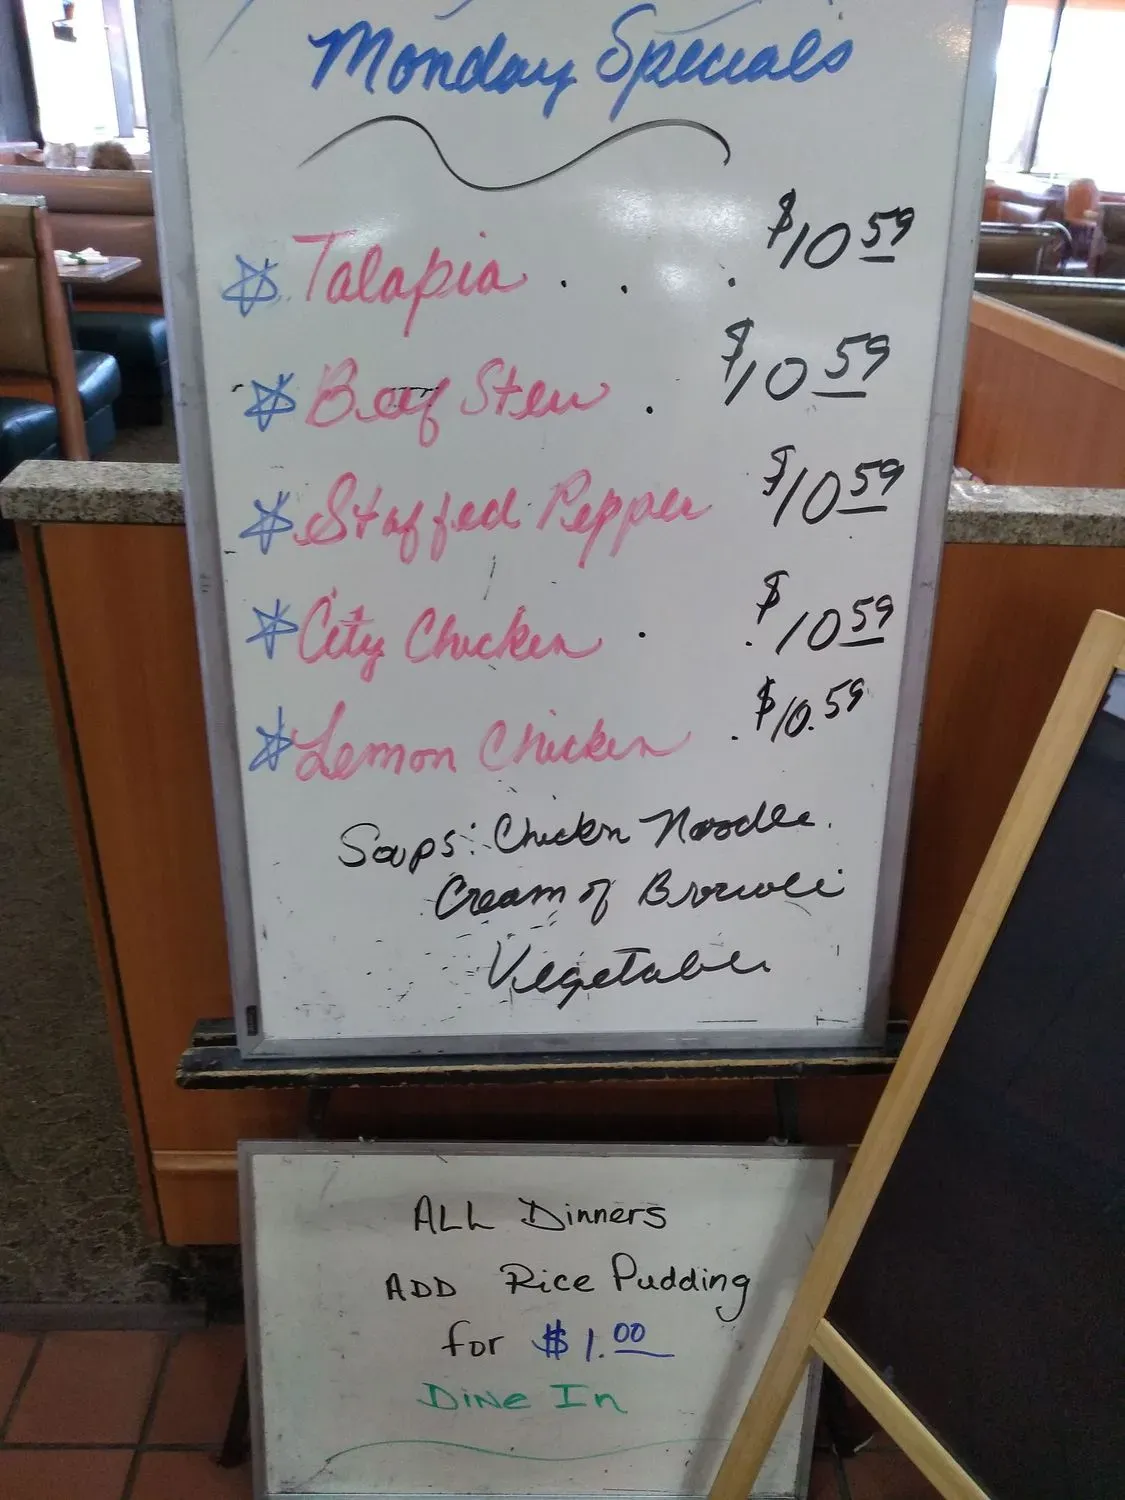 Monday Specials
Talapia . . . $10 59
Beef Stew . $10 59
Stuffed Pepper $10 59
City Chicken . . $10 59
Lemon Chicken . $10.59
Soups: Chicken Noodle
Cream of Broccoli
Vegetable
ALL Dinners
ADD Rice Pudding
for $1.00
Dine In